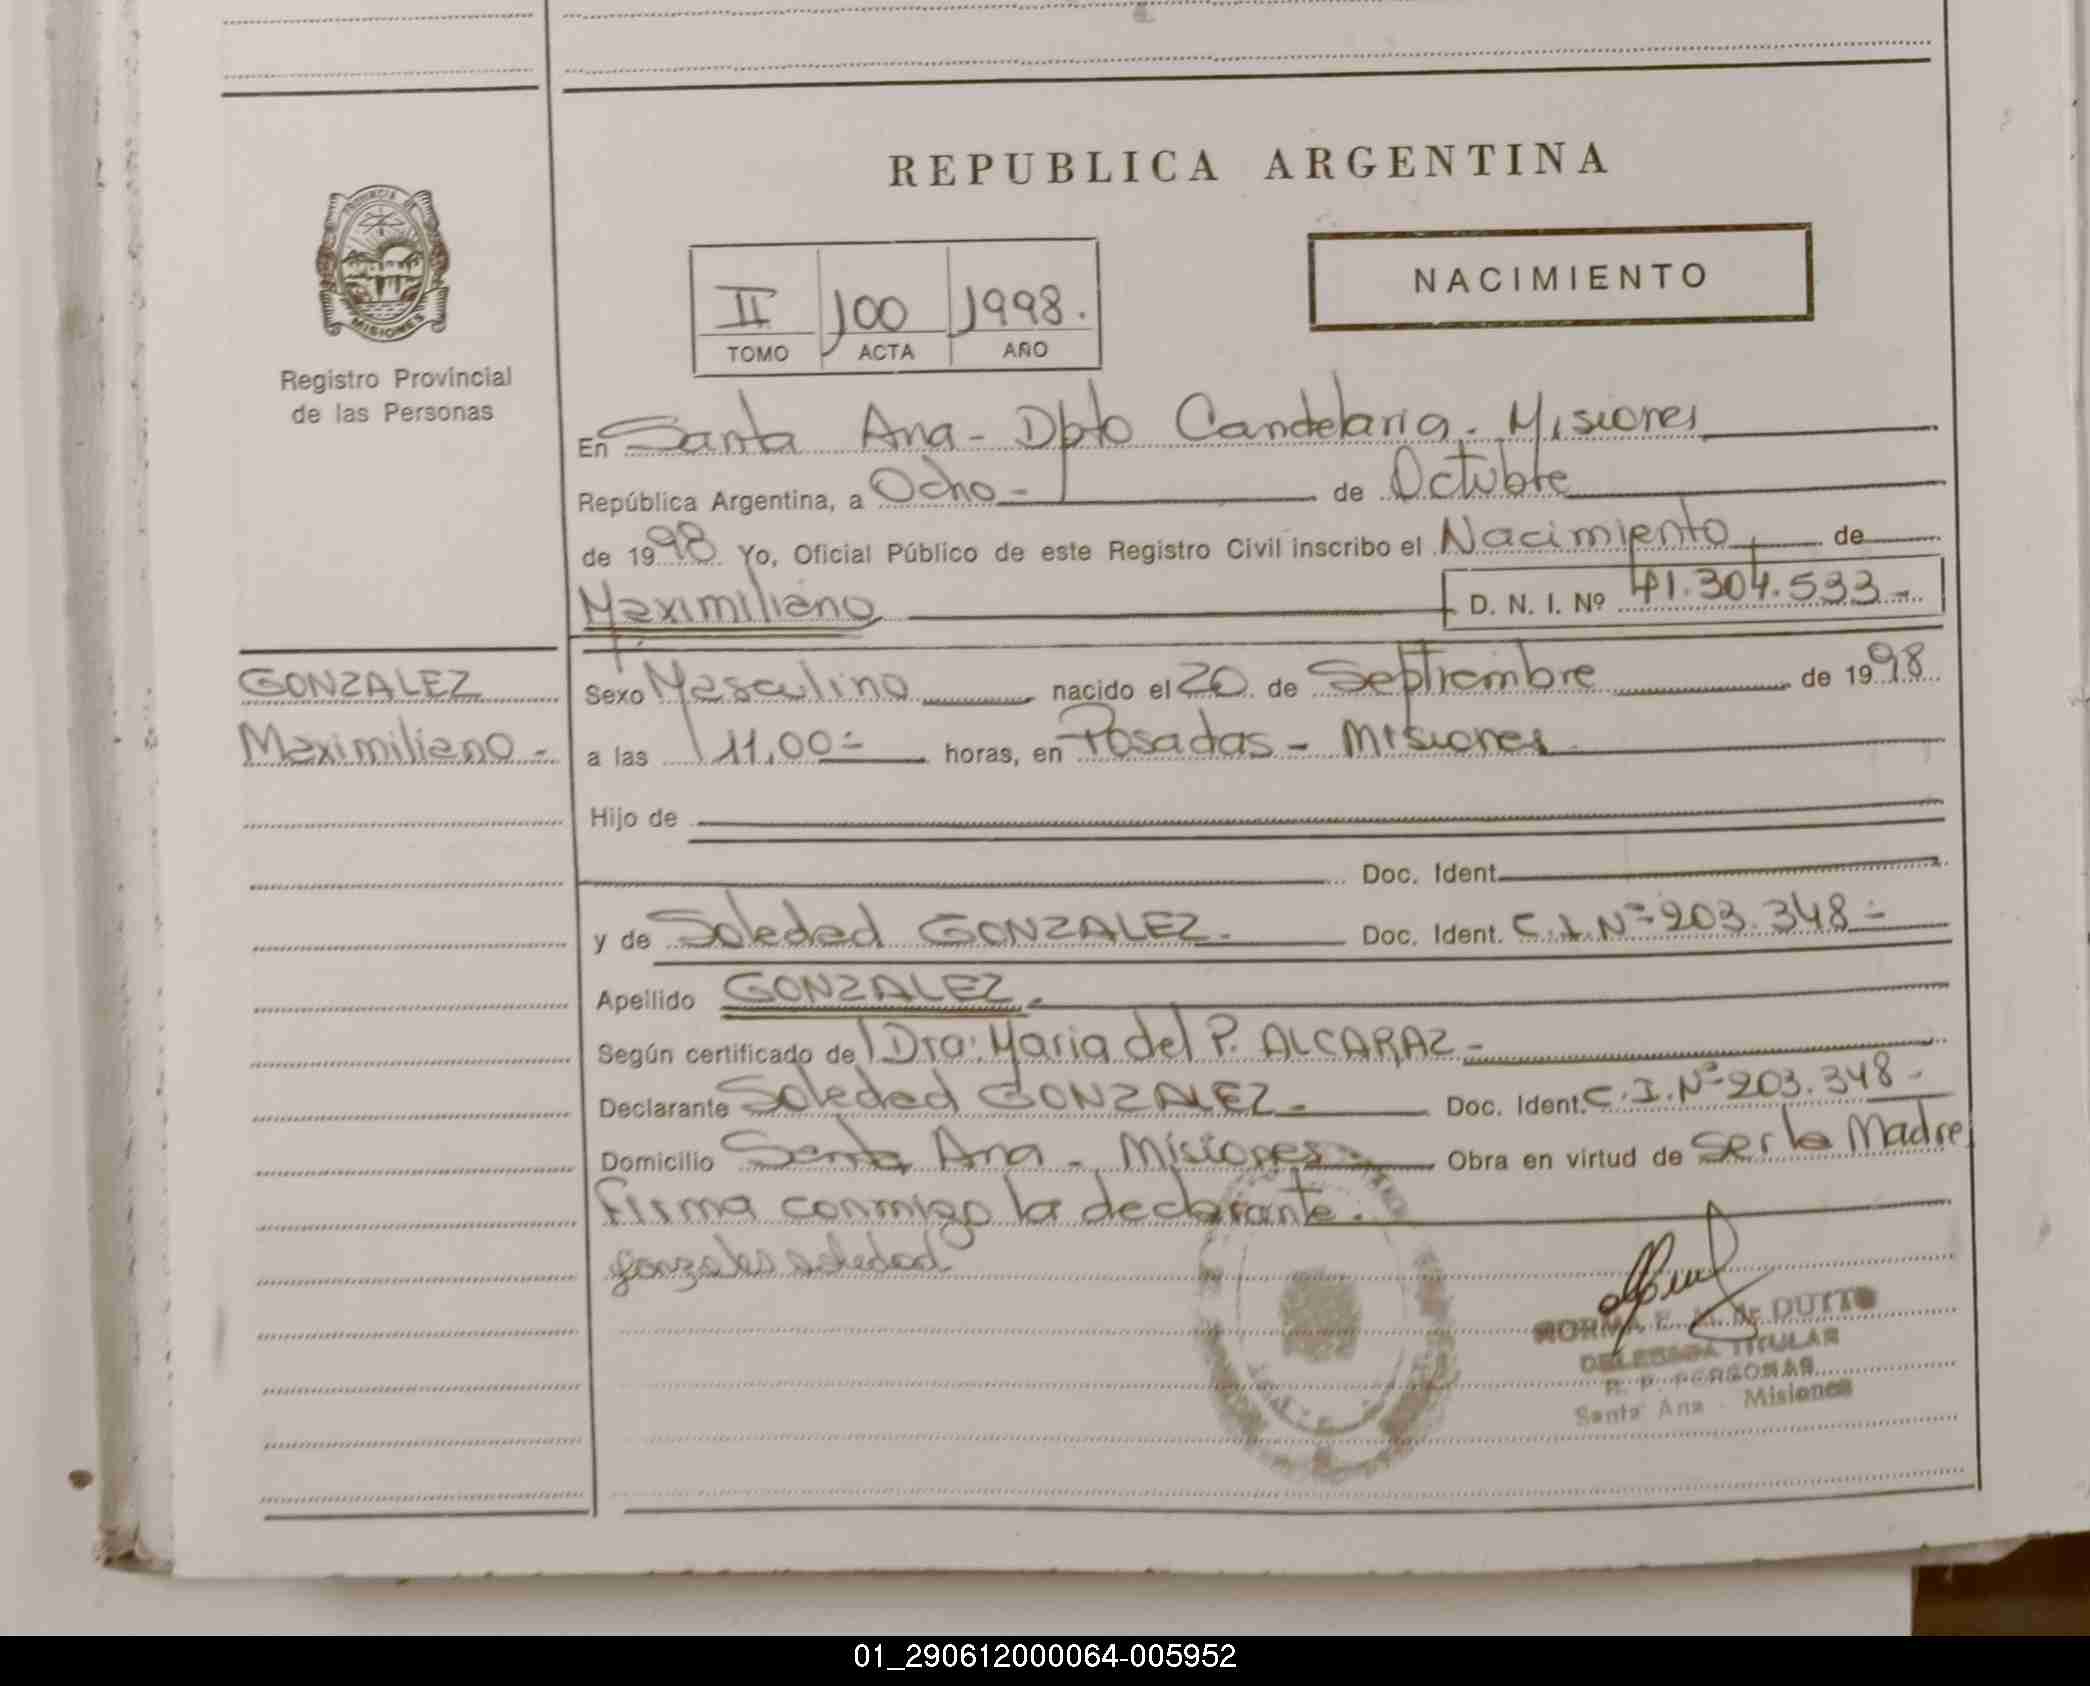 REPUBLICA ARGENTINA
PROVINCIA DE
MISIONES
Registro Provincial
de las Personas
NACIMIENTO
II 100 1998.
TOMO ACTA AÑO
En Santa Ana - Dpto Candelaria - Misiones
República Argentina, a Ocho - de Octubre
de 1998 Yo, Oficial Público de este Registro Civil inscribo el Nacimiento de
Maximiliano D. N. I. Nº 41.304.533 -
GONZALEZ
Maximiliano -
Sexo Masculino nacido el 20 de Septiembre de 1998
a las 11,00 - horas, en Posadas - Misiones
Hijo de
Doc. Ident.
y de Soledad GONZALEZ. Doc. Ident. C.I. Nº 203.348 -
Apellido GONZALEZ.
Según certificado de Dra. Maria del P. ALCARAZ -
Declarante Soledad GONZALEZ - Doc. Ident. C.I. Nº 203.348 -
Domicilio Santa Ana - Misiones - Obra en virtud de ser la Madre
Firma conmigo la declarante.
gonzales soledad
NORMA E. de DUTTO
DELEGADA TITULAR
R. P. PERSONAS
Santa Ana - Misiones
01_290612000064-005952